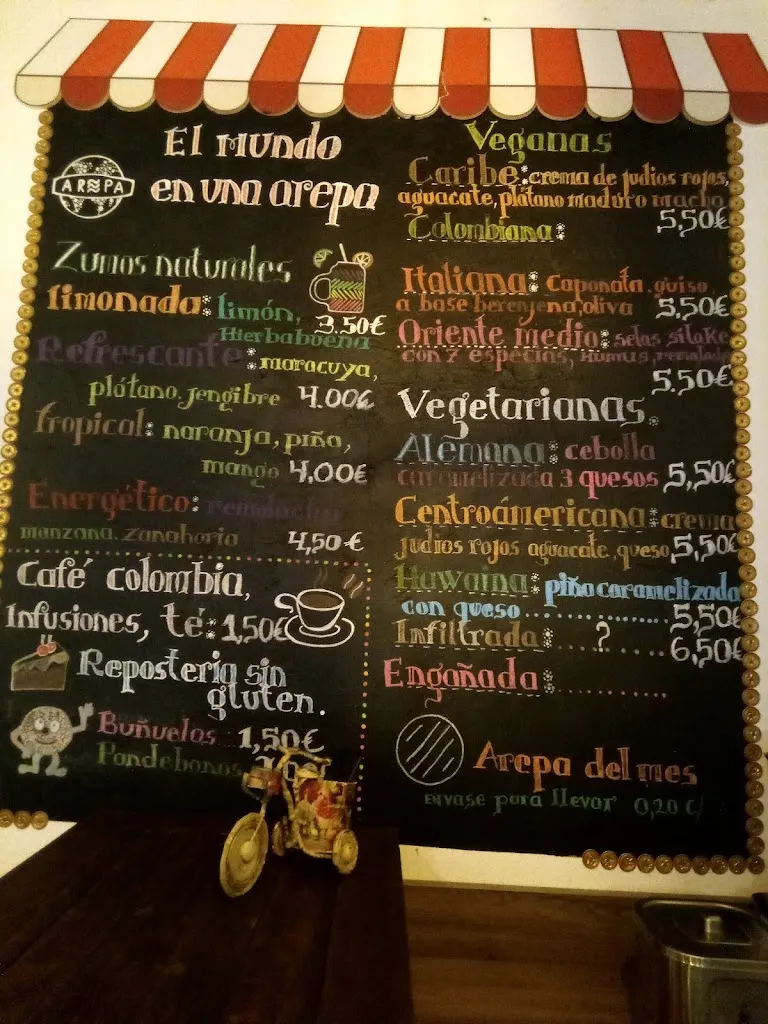 El Mundo
en una arepa
AREPA
Zumos naturales
Limonada: limón,
3.50€
Hierbabuena
Refrescante: maracuya,
plátano. jengibre 4.00€
Tropical: naranja, piña,
mango 4,00€
Energético: remolacha
manzana. zanahoria 4,50€
Café colombia,
Infusiones, té: 1,50€
Repostería sin
gluten.
Buñuelos 1,50€
Pandebonos
Veganas
Caribe: crema de judios rojas,
aguacate, plátano maduro macho
5,50€
Colombiana:
Italiana: Caponata. guiso
a base berenjena, oliva 5,50€
Oriente medio: setas
con 7 especias, humus,
5.50€
Vegetarianas
Alemana: cebolla
caramelizada 3 quesos 5,50€
Centroámericana: crema
judios rojos aguacate, queso 5,50€
Hawaina: piña caramelizada
con queso........ 5,50€
Infiltrada: .... ? ..... 6,50€
Engañada: ..........
Arepa del mes
envase para llevar 0,20 €